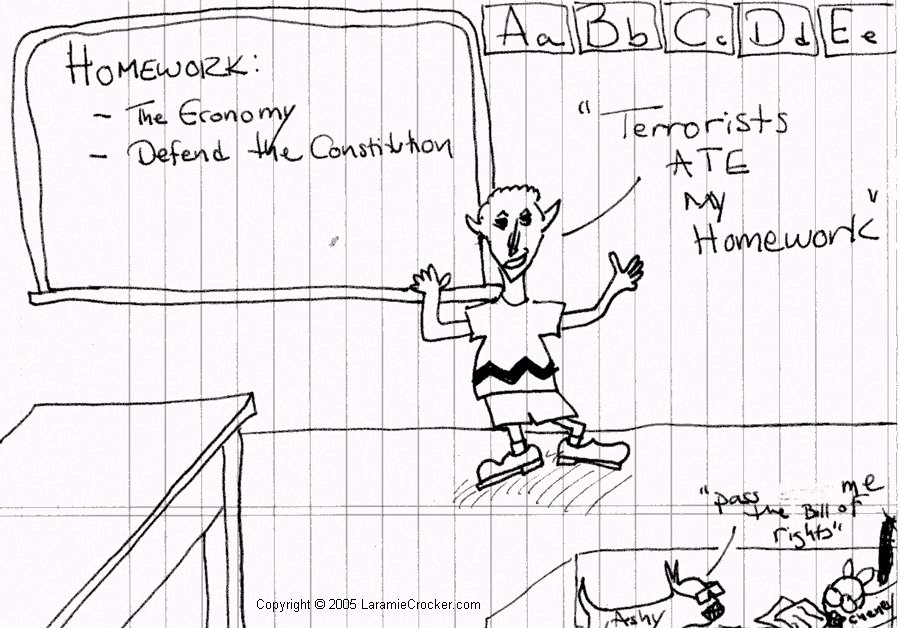 Aa Bb Cc Dd Ee
HOMEWORK:
- The Economy
- Defend the Constitution
"Terrorists
ATE
MY
Homework"
"pass me
the Bill of
rights"
Ashy
Copyright © 2005 LaramieCrocker.com